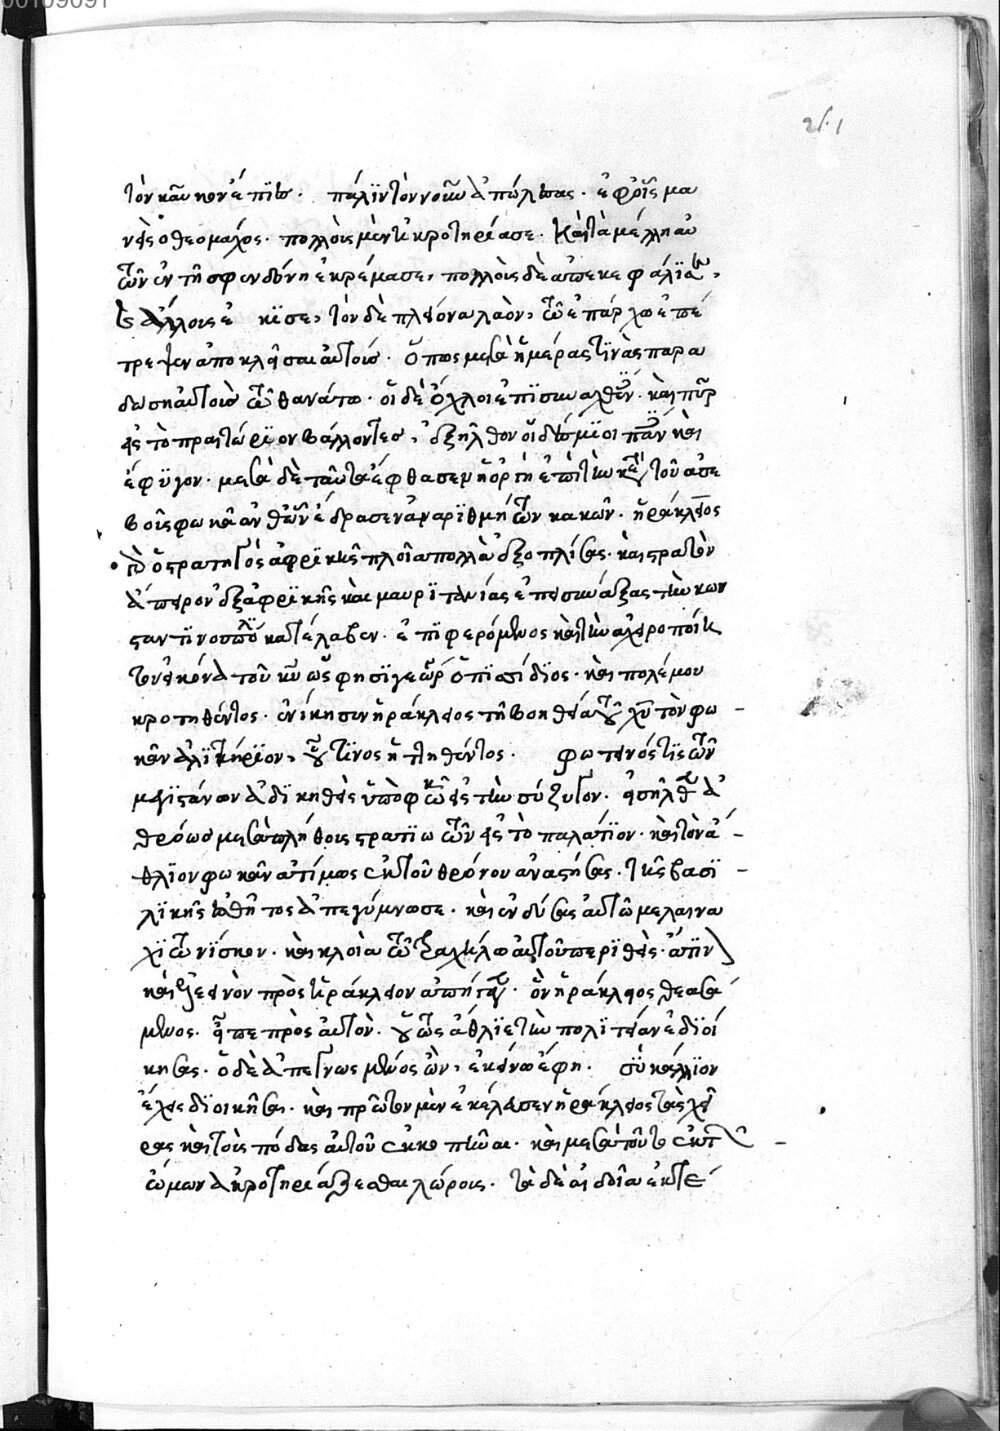 00109091
241
τὸν καῦκον ἔπιες. πάλιν τὸν νοῦν ἀπώλεσας. ἐφ' οἷς μα
νεὶς ὁ θεομάχος. πολλοὺς μὲν ἠκρωτηρίασε. καὶ τὰ μέλη αὐ
τῶν ἐν τῇ σφενδόνῃ ἐκρέμασε, πολλοὺς δὲ ἀπεκεφάλισε,
τὸν δὲ πλείονα λαὸν, τῷ ἐπάρχῳ ἐπέ
τρεψεν ἀποκλεῖσαι αὐτούς. ὅπως μετὰ ἡμέρας τινὰς παρα
δώσῃ αὐτοὺς τῷ θανάτῳ. οἱ δὲ ὄχλοι ἐπισυναχθέντες. καὶ πῦρ
εἰς τὸ πραιτώριον βάλλοντες, ἐξῆλθον οἱ δέσμιοι πάντες καὶ
ἔφυγον. μετὰ δὲ ταῦτα ἔφθασεν ἡ ὀργὴ ἐπὶ τὴν κεφαλὴν τοῦ ἀσε
βοῦς φωκᾶ ἀνθ' ὧν ἔδρασεν ἀναριθμήτων κακῶν. ἡράκλειος
δὲ ὁ στρατηγὸς ἀφρικῆς πλοῖα πολλὰ ἐξοπλίσας. καὶ στρατὸν
ἄπειρον ἐξ ἀφρικῆς καὶ μαυριτανίας ἐπισυνάξας τὴν κων
σταντινούπολιν κατέλαβεν. ἐπιφερόμενος καὶ τὴν ἀχειροποίη
τον εἰκόνα τοῦ κυ ὥς φησι γεώρ ὁ πισίδιος. καὶ πολέμου
κροτηθέντος. ἐνίκησεν ἡράκλειος τῇ βοηθείᾳ τοῦ χυ τὸν φω
κᾶν ἀλιτήριον, οὕτινος ἡττηθέντος. φωτεινός τις τῶν
μεγιστάνων ἀδικηθεὶς ὑπὸ φωκᾶ εἰς τὴν σύζυγον. εἰσῆλθεν ἀ
θρόως μετὰ πλήθους στρατιωτῶν εἰς τὸ παλάτιον. καὶ τὸν ἄ
θλιον φωκᾶν ἀτίμως ἐκ τοῦ θρόνου ἀναστήσας. τῆς βασι
λικῆς ἐσθῆτος ἀπεγύμνωσε. καὶ ἐνδύσας αὐτῷ μέλαινα
χιτωνίσκον. καὶ κλοιὰ τῷ τραχήλῳ αὐτοῦ περιθεὶς.
καὶ ξένον πρὸς ἡράκλειον ἀπήγαγεν. ὃν ἡράκλειος θεασά
μενος. εἶπε πρὸς αὐτὸν. οὕτως ἄθλιε τὴν πολιτείαν ἐδιοί
κησας. ὁ δὲ ἀπεγνωσμένος ὢν, ἐκείνῳ ἔφη. σὺ κάλλιον
ἔχεις διοικῆσαι. καὶ πρῶτον μὲν ἐκέλευσεν ἡράκλειος τὰς χεῖ
ρας καὶ τοὺς πόδας αὐτοῦ ἐκκοπῆναι. καὶ μετὰ τοῦτο ἐκ τῶν
ὤμων ἀκρωτηριάζεσθαι χώροις. τὰ δὲ αἰδοῖα ἐκτε